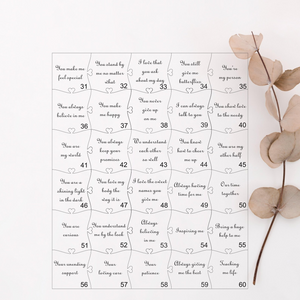 You make me
feel special
31
You stand by
me no matter
what
32
I love that
you ask
about my day
33
You still
give me
butterflies
34
You're
my person
35
You always
believe in me
36
You make
me happy
37
You never
give up
on me
38
I can always
talk to you
39
40
You are
my world
41
You always
keep your
promises
42
We understand
each other
so well
43
You know
how to cheer
me up
44
You are my
other half
45
You are a
shining light
in the dark
46
You love my
body the
way it is
47
I love the
names
you give me
48
Always
time for me
49
Our time
together
50
You are
51
You understand
me by the look
52
Always
believing
in me
53
Inspiring me
54
Being a
help to me
55
Your
support
56
Your
loving care
57
Your
patience
58
Always giving
me the best
59
Teaching
me life
60